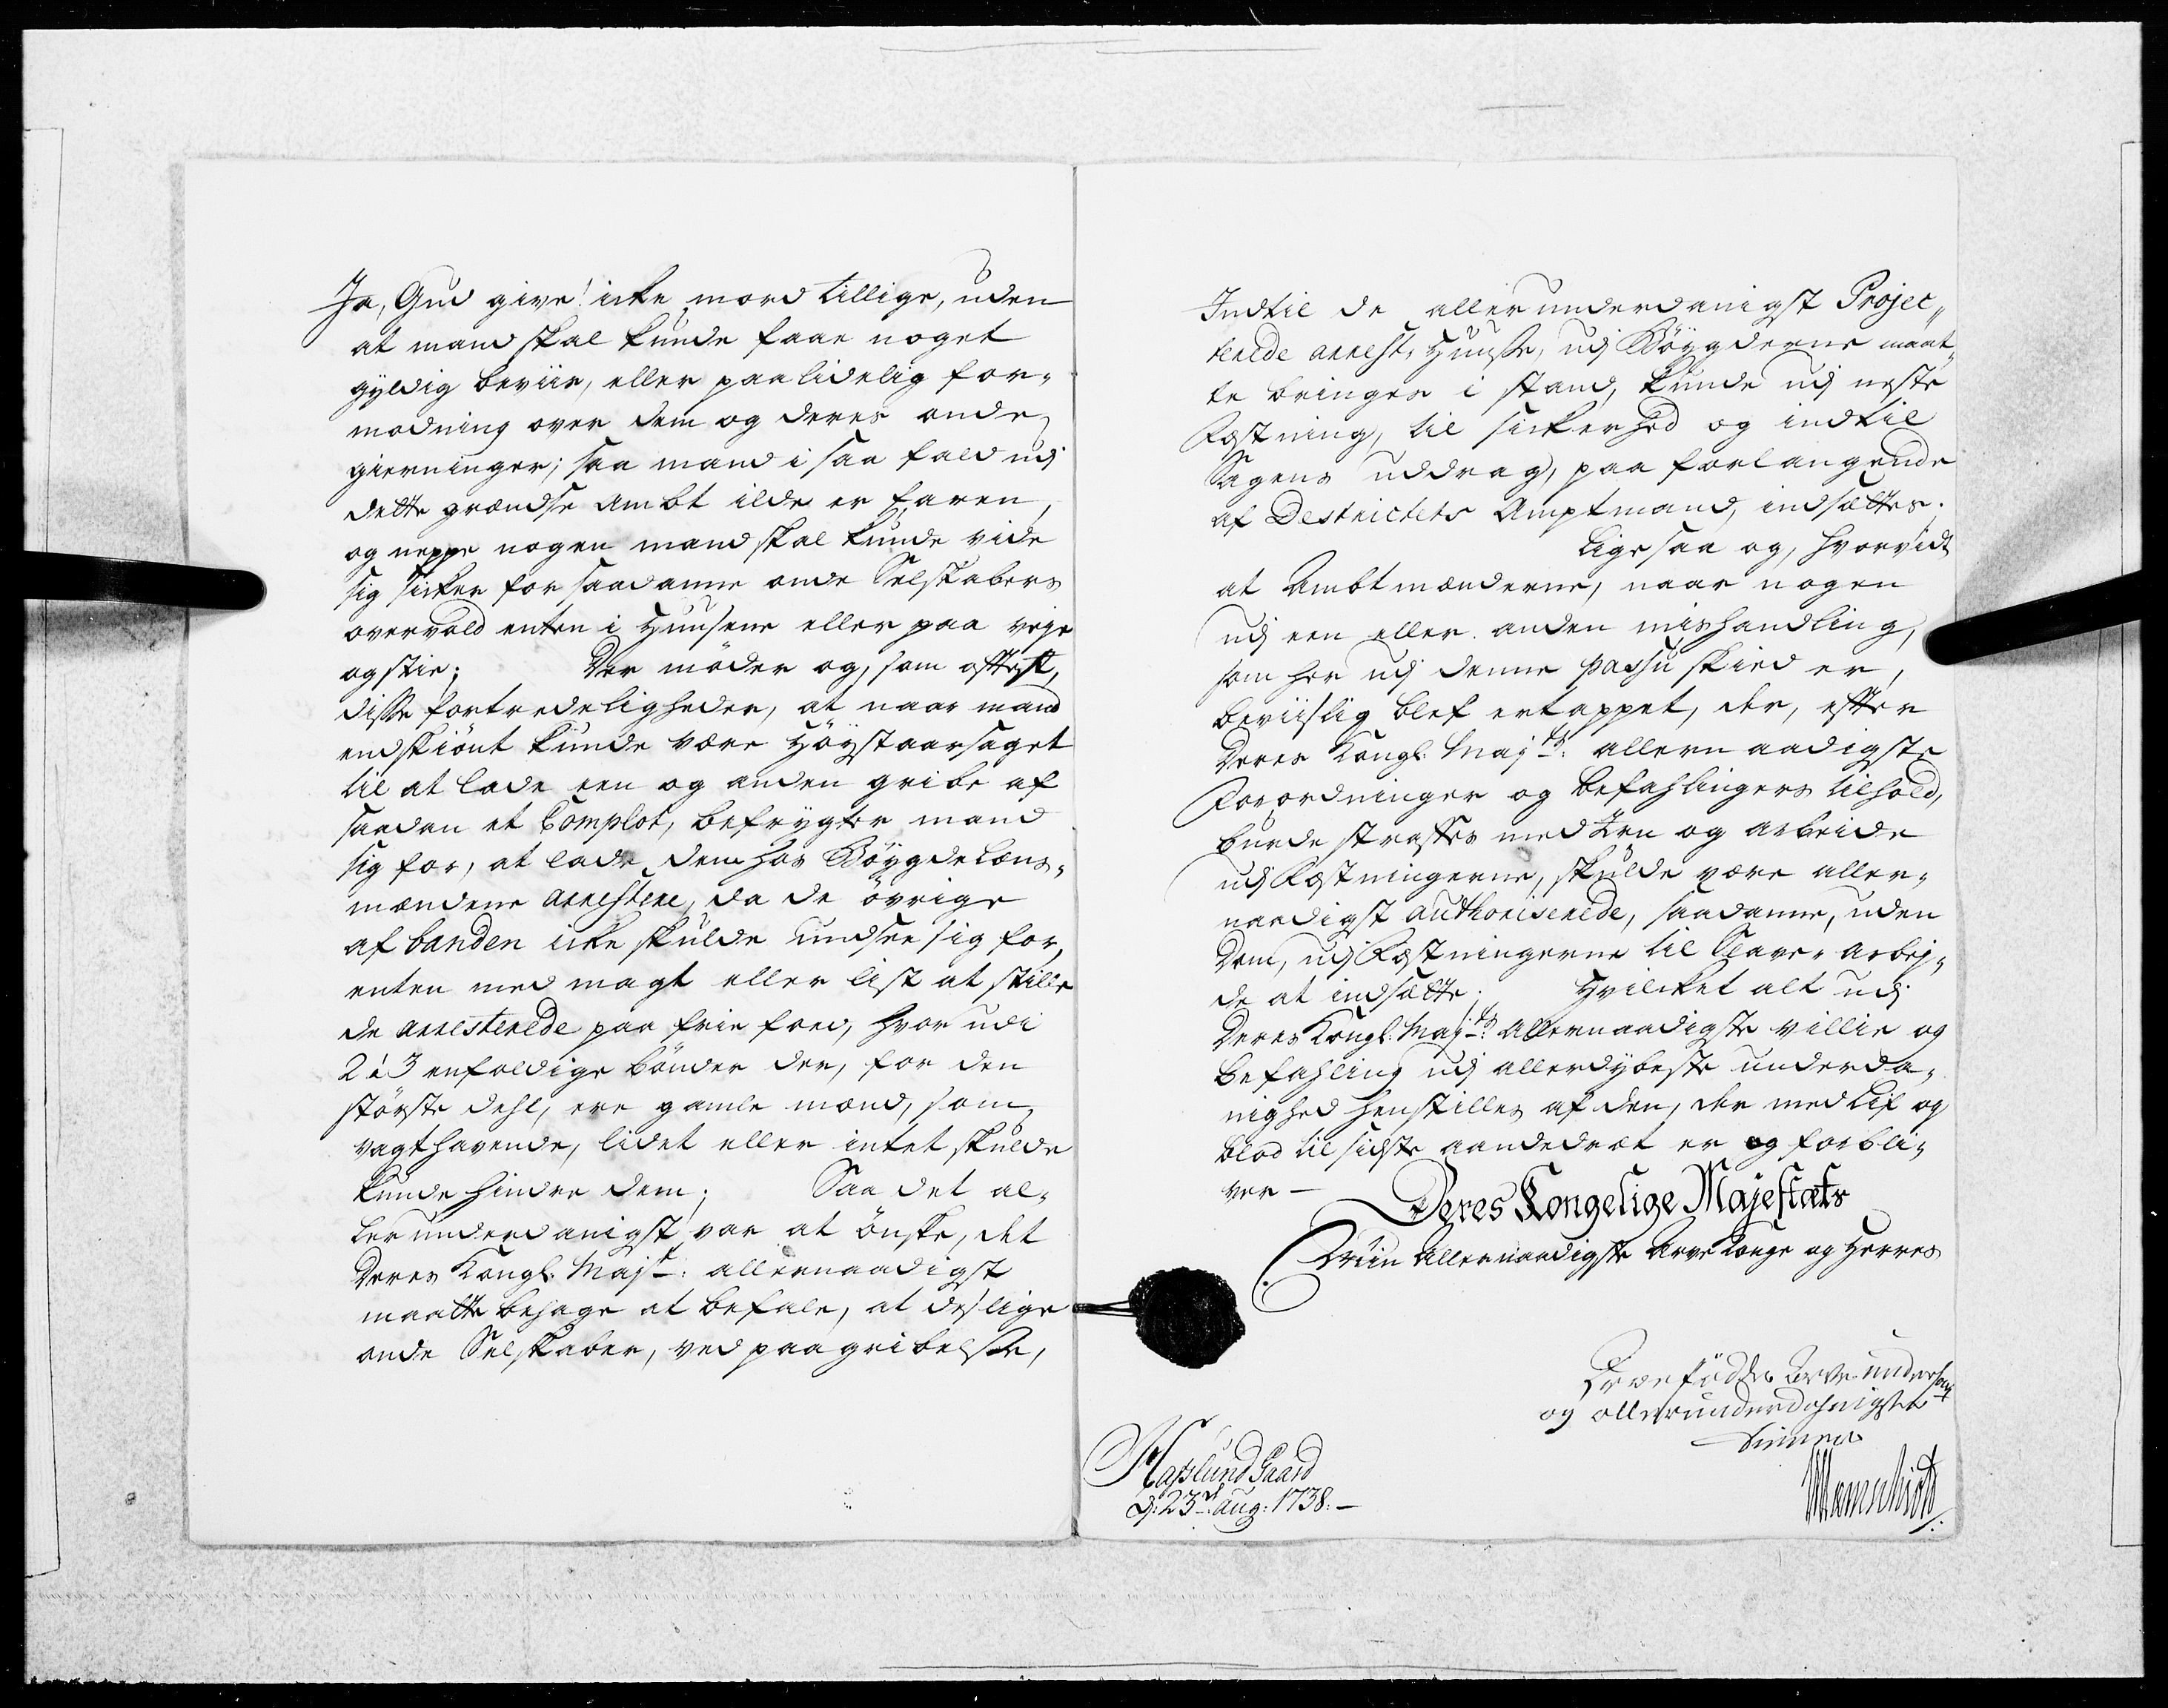 Ja, Gud give! icke mord tillige, uden
at mand skal kunde faae noget
gyldig beviis, eller paalidelig for-
modning over dem og deres onde
gierninger; saa mand i saa fald udj
dette grændse Ambt ilde er faren,
og neppe nogen mand skal kunde vide
sig sicker for saadanne onde Selskabers
overvold enten i Huusene eller paa veje
og stie; Der møder og, som oftest,
disse fortredeligheder, at naar mand
endskiönt kunde være Höystaarsaget
til at lade een og anden gribe af
saadan et Complot, befrygter mand
sig for, at lade dem hos Böygdelens-
mændene arrestere, da de övrige
af banden icke skulde undsee sig for,
enten med magt eller list at stille
de arresterede paa frie foed, hvor udi
2 à 3 enfoldige bönder der, for den
störste dehl, ere gamle mænd, som
vagthavende, lidet eller intet skulde
kunde hindre dem; Saa det al-
lerunderdanigst var at önske, det
Deres Kongl: Majt: allernaadigst
maatte behage at befale, at deslige
onde Selskaber, ved paagribelse,
Indtil de allerunderdanigst Projec-
terede arrest-Huuse, udj Böygderne maat-
te bringes i stand, kunde udj neste
Fæstning, til sickerhed og indtil
Sagens uddrag, paa forlangende
af Destrictets Amptmand, indsættes.
Ligesaa og, hvorvidt
at Ambtmænderne, naar nogen
udj een eller anden mishandling,
som her udj denne passu skied er,
beviislig blef ertappet, der, efter
Deres Kongl: Majts: allernaadigste
Forordninger og befahlingers tilhold,
burde straffes med Jern og arbeide
udj Fæstningerne, skulde være aller-
naadigst authoriserede, saadanne, uden
Dom, udj Fæstningerne til Slave-arbej-
de at indsætte; Hvilcket alt udj
Deres Kongl: Majts: Allernaadigste villie og
befahling udj allerdybeste underda-
nighed henstilles af den, der med Lif og
blod til sidste aandedræt er og forbli-
ver -
Deres Kongelige Majestæts
Min Allernaadigste Arve Konge og Herres
Troefödte Arve undersaat
og allerunderdanigste
tienner
Hafslund Gaard
d: 23de Aug: 1738. -